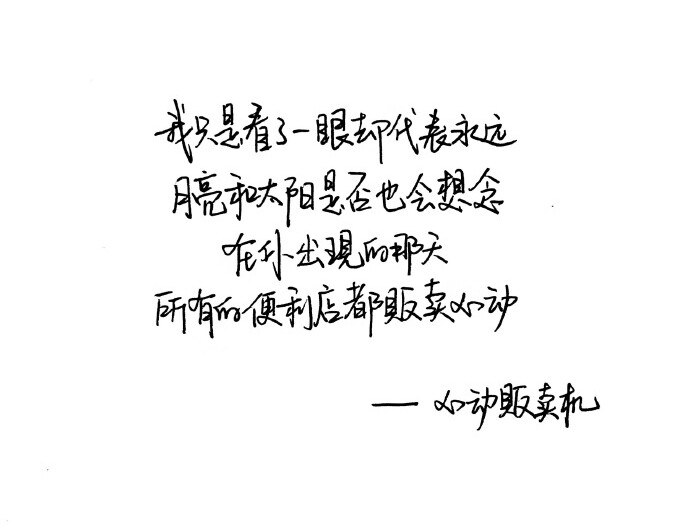 我只是看了一眼却代表永远
月亮和太阳是否也会想念
在你出现的那天
所有的便利店都贩卖心动
——心动贩卖机